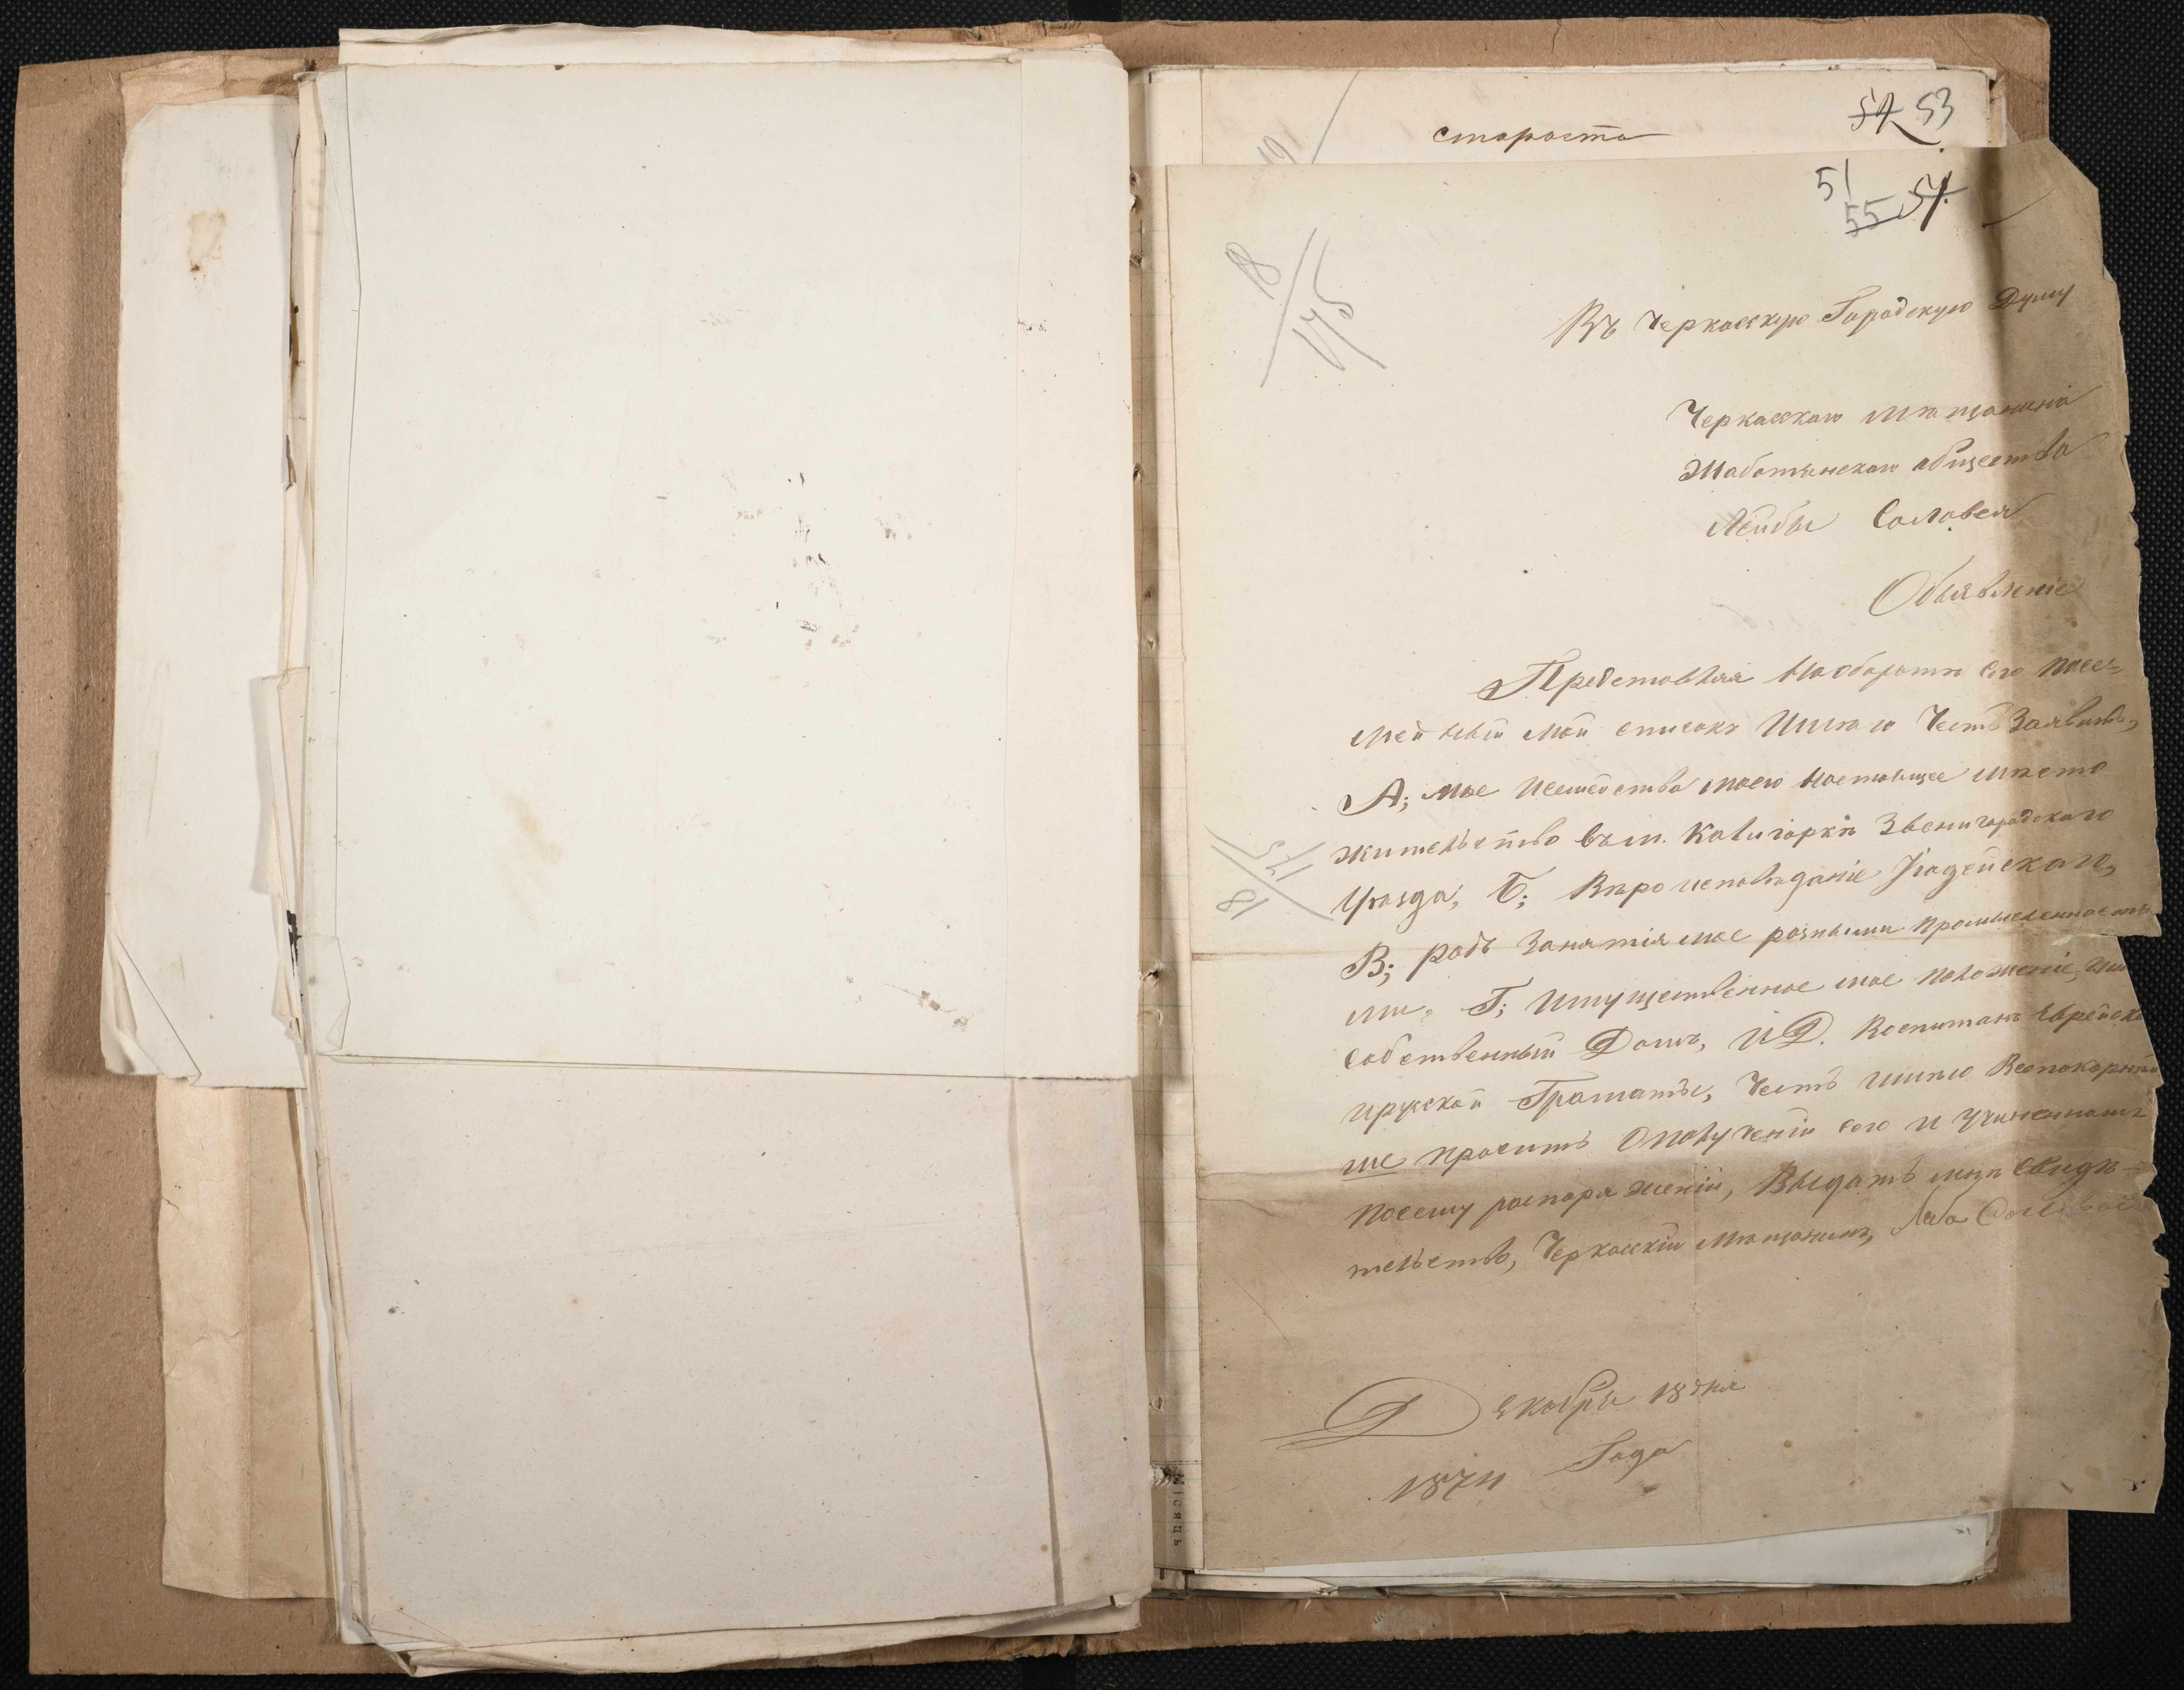 староста
52 53
51
55 54.
18/175
Въ Черкасскую Городскую Думу
Черкасскаго Мѣщанина
Жаботинскаго общества
Лейбы Соловея
Объявленіе
Представляя наоборотѣ сего посе=
мейный мой списокъ Имѣю Честь Заявить,
А; мое исемейства моего настоящее мѣсто
жительство въ м. Калигоркѣ Звенигородскаго
Уѣзда, Б; Вѣроисповѣданіе Іюдейскаго,
175/18
В; родъ Занятія мое разными промышленностя
ми, Г; Имущественное мое положеніе,
собственный Домъ, и Д. Воспитанъ Еврейско
ирусской Граматы, Честь имѣю Всепокорнѣй
ше просить Ополученіи сего и Учиненномъ
посему распоряженіи, Выдать мнѣ Свидѣ=
тельство, Черкасскій Мѣщанинъ,
Декабря 18 дня
1874 Года
Місяць